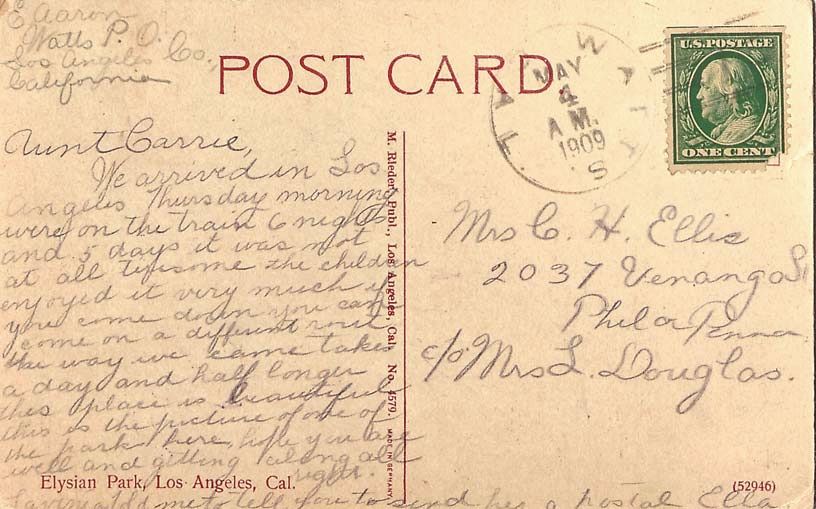 E Aaron
Watts P. O.
Los Angeles Co.,
California
POST CARD.
WATTS
MAY
4
A M.
1909
U.S. POSTAGE
ONE CENT
Aunt Carrie,
We arrived in Los
Angeles Thursday morning
were on the train 6 nights
and 5 days it was not
at all tiresome the children
enjoyed it very much if
you come down you can
come on a different rout
the way we came takes
a day and half longer
this place is beautiful
this is the picture of one of
the park here, hope you are
well and gitting along all
right.
told me to tell you to send her a postal Ella
M. Rieder, Publ., Los Angeles, Cal. No. 4579. MADE IN GERMANY
Mrs C. H. Ellis
2037 Venango St
Phila Penna
c/o Mrs L. Douglas.
Elysian Park, Los Angeles, Cal.
(52946)